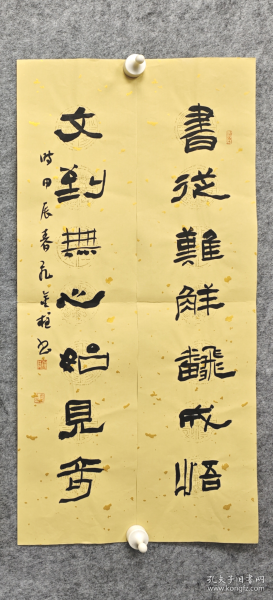 書從難觧飜成悟
文到無心始見奇
时甲辰春
金柱书
孔夫子旧书网